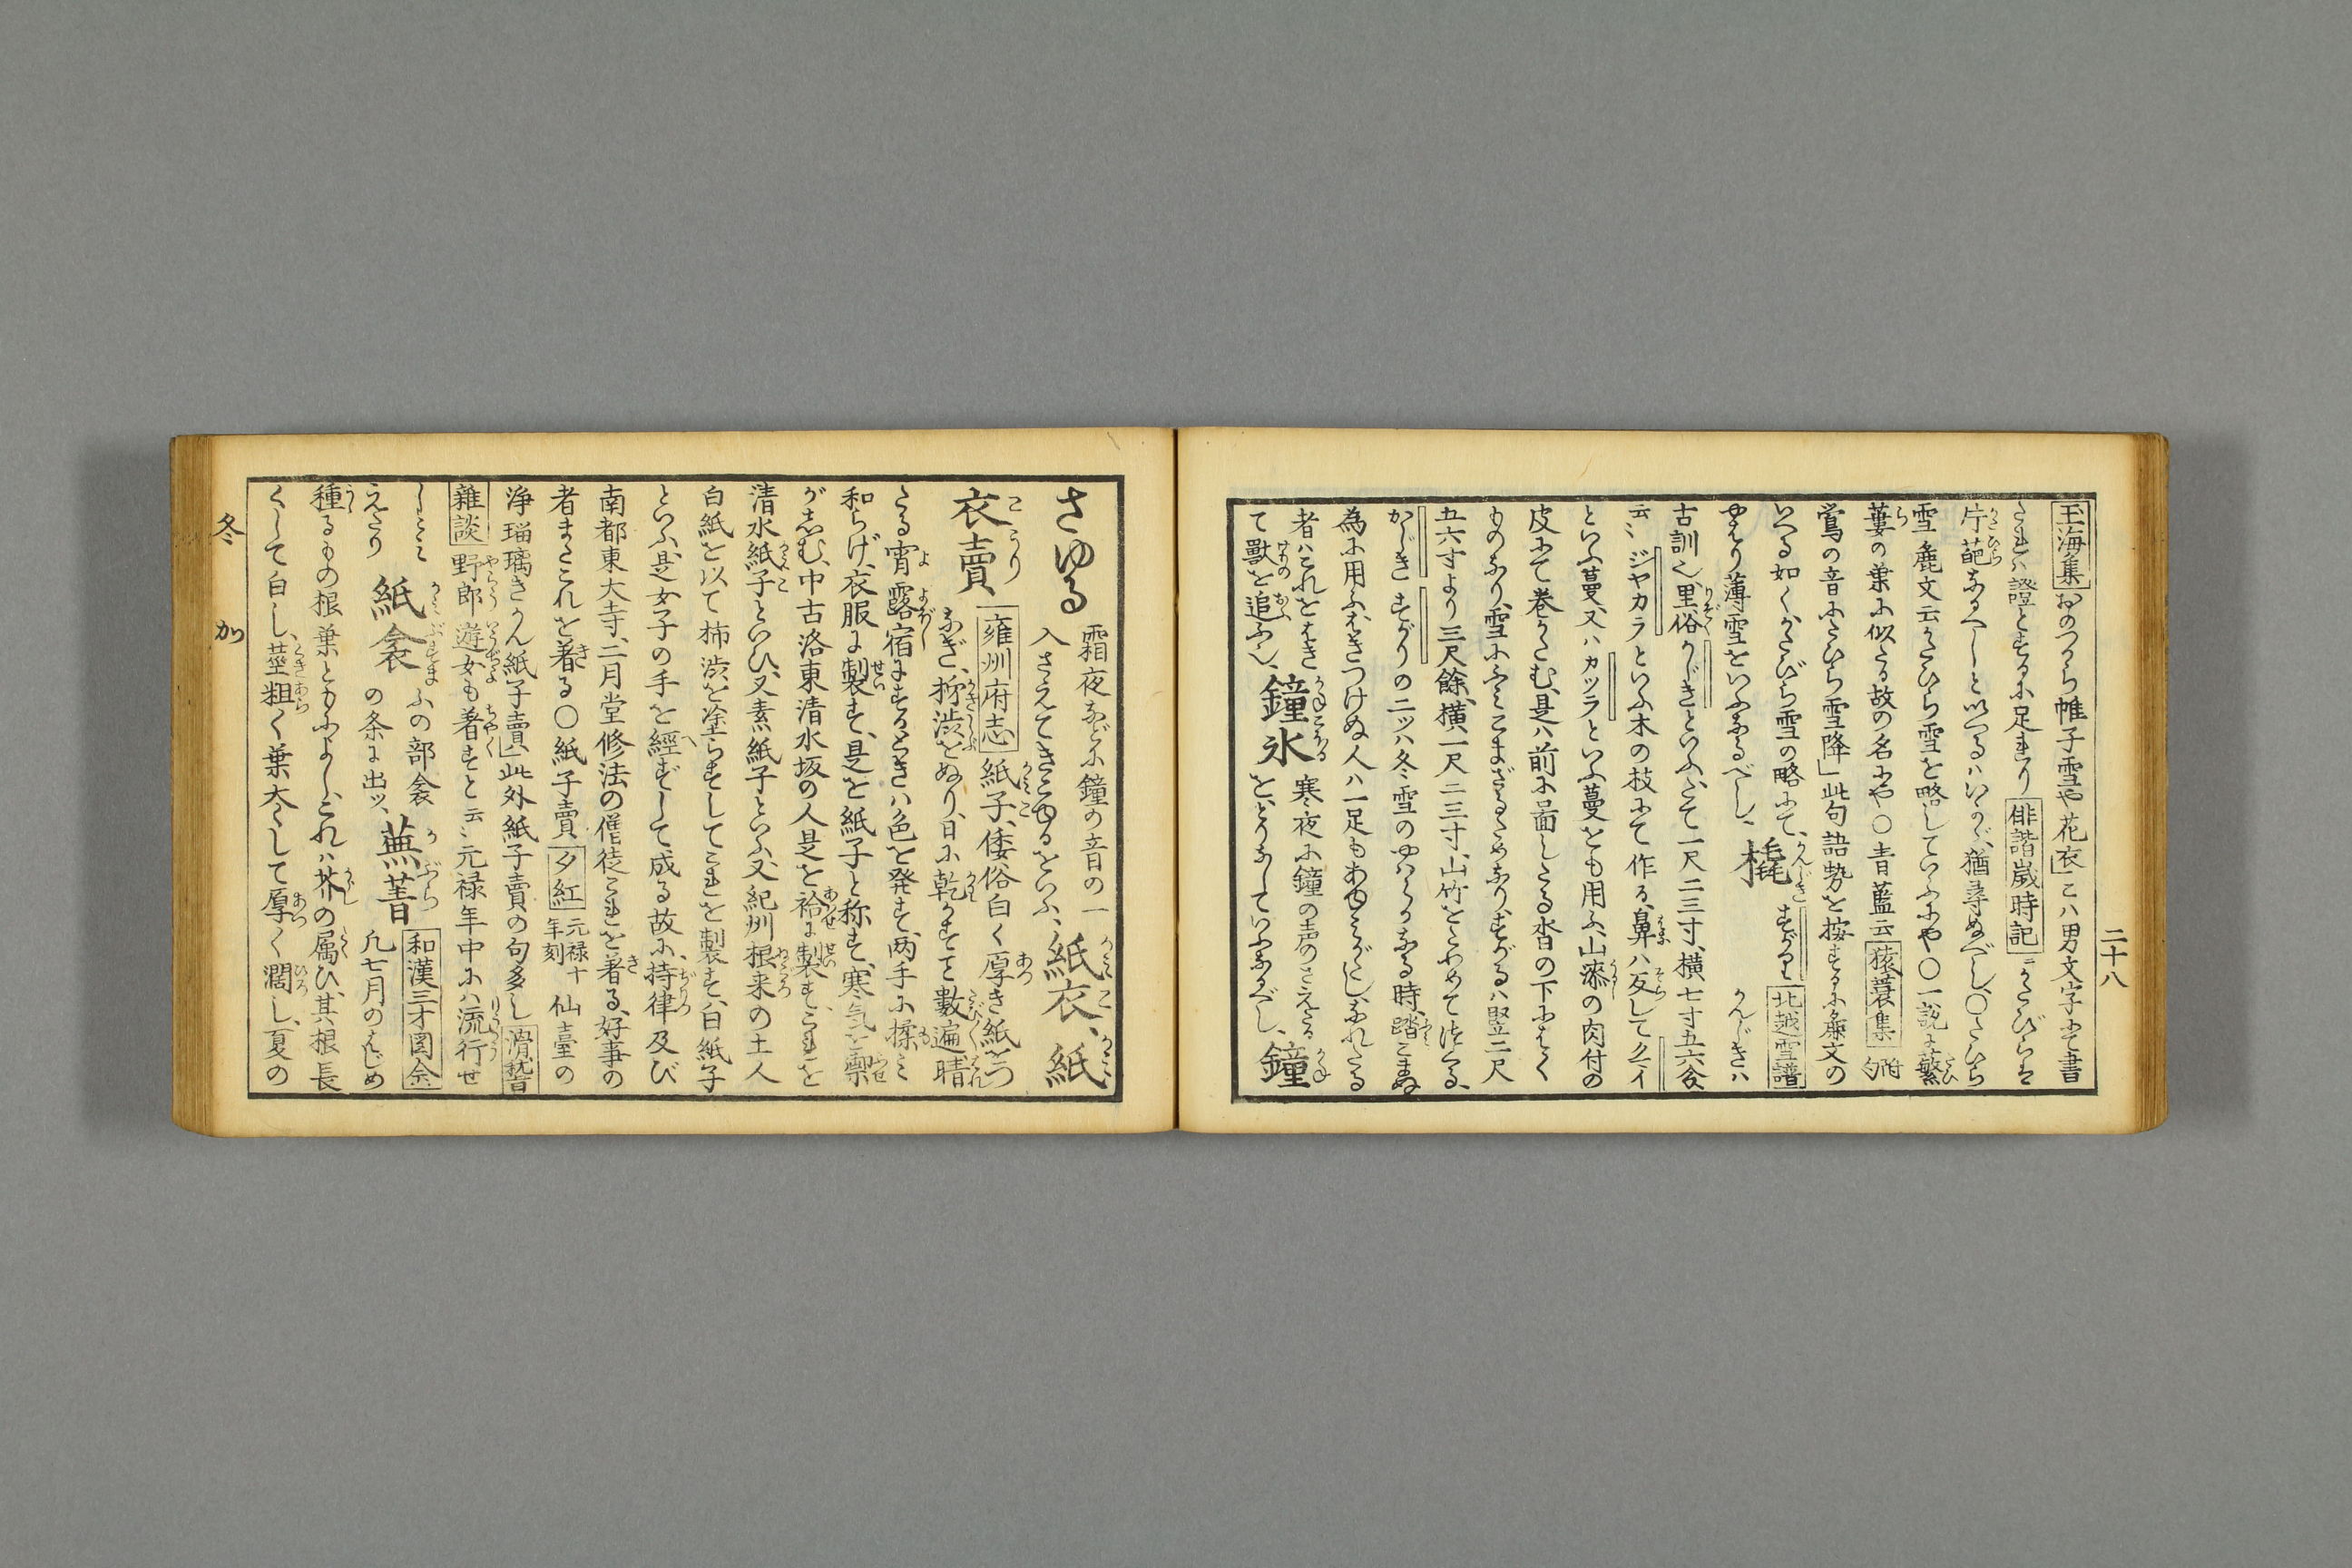 二十八
玉海集おのづから帷子雪や花衣」こハ男文字にて書
たれバ證とするに足れり俳諧歳時記ニかたびらは
片葩なるべしと以へるハいかゞ猶尋ぬべし○たひら
雪鹿文云かたひら雪を略していふにや○一説に蘩
蔞の葉に似たる故の名にや○青藍云猿蓑集附句
鴬の音にたひら雪降」此句語勢を按するに鹿文の
いへる如くかたびら雪の略にて、
やはり薄雪をいふなるべし、橇すがり北越雪譜かんじきハ
古訓也、里俗かじきといふ、たて一尺二三寸、横七寸五六分
云〻ジヤカラといふ木の枝にて作る、鼻ハ反してクイ
といふ蔓又ハカツラといふ蔓をも用ふ、山漆の肉付の
皮にて巻かたむ、是ハ前に図したる沓の下にはく
ものなり、雪にふミこまざるためなり、すがるハ竪二尺
五六寸より三尺餘、横一尺二三寸、山竹をたわめて作る、
かじきすがりの二ツハ冬雪のやハらかなる時、踏こまぬ
為に用ふはきつけぬ人ハ一足もあゆミがたしなれたる
者ハこれをはき
て獸を追ふ也、鐘氷寒夜に鐘の声のさえたる
をとりなしていふなるべし、鐘
さゆる霜夜などに鐘の音の一
入さえてきこゆるをいふ、紙衣、紙
衣賣雍州府志紙子、倭俗白く厚き紙をつ
なぎ、柿渋をぬり、日に乾かすこと數遍晴
たる宵露宿にするときハ色を発す、両手に揉ミ
和らげ、衣服に製す、是を紙子と称す、寒気を禦
が志む、中古洛東清水坂の人是を袷に製す、これを
清水紙子といひ、又素紙子といふ、又紀州根来の土人
白紙を以て柿渋を塗らずしてこれを製す、白紙子
といふ、是女子の手を經ずして成る故に、持律及び
南都東大寺、二月堂修法の僧徒これを着る、好事の
者またこれを着る○紙子賣夕紅元禄十年刻仙臺の
浄瑠璃きかん紙子賣」此外紙子賣の句多し滑稽
雑談野郎遊女も着すと云〻元禄年中にハ流行せ
しとミえたり紙衾ふの部衾の条に出ツ、蕪菁和漢三才図会凡七月のはじめ
種るもの根葉ともによし、これハ芥の属ひ、其根長
くして白し、茎粗く葉大くして厚く濶し、夏の
冬 加